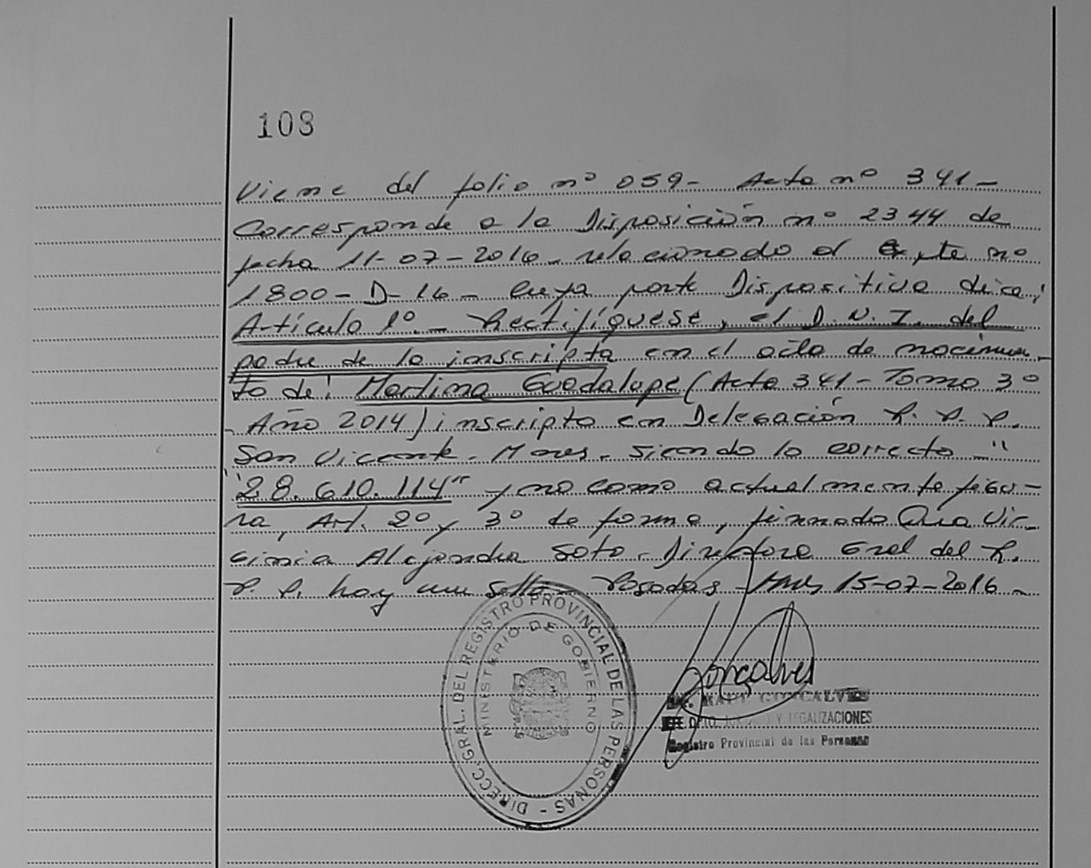 108
Viene del folio nº 059- Acta nº 341-
Corresponde a la Disposición nº 2344 de
fecha 11-07-2016- relacionado al Expte nº
1800-D-16- cuya parte Dispositiva dice:
Artículo 1º.- Rectifíquese, el D.N.I. del
padre de la inscripta en el acta de nacimien-
to de: Martina Guadalupe (Acta 341-Tomo 3º
- Año 2014) inscripta en Delegación R. P. P.
San Vicente. Mnes. siendo lo correcto "
"28.610.114" y no como actualmente figu-
ra, Art. 2º y 3º de forma, firmado Dra Vir-
ginia Alejandra Soto. Directora Gral del R.
P. P. hay un sello- Posadas -Mnes 15-07-2016-
DIRECC. GRAL. DEL REGISTRO PROVINCIAL DE LAS PERSONAS -
MINISTERIO DE GOBIERNO
Gonçalves
RAUL GONCALVES
JEFE DPTO. Y LEGALIZACIONES
Registro Provincial de las Personas